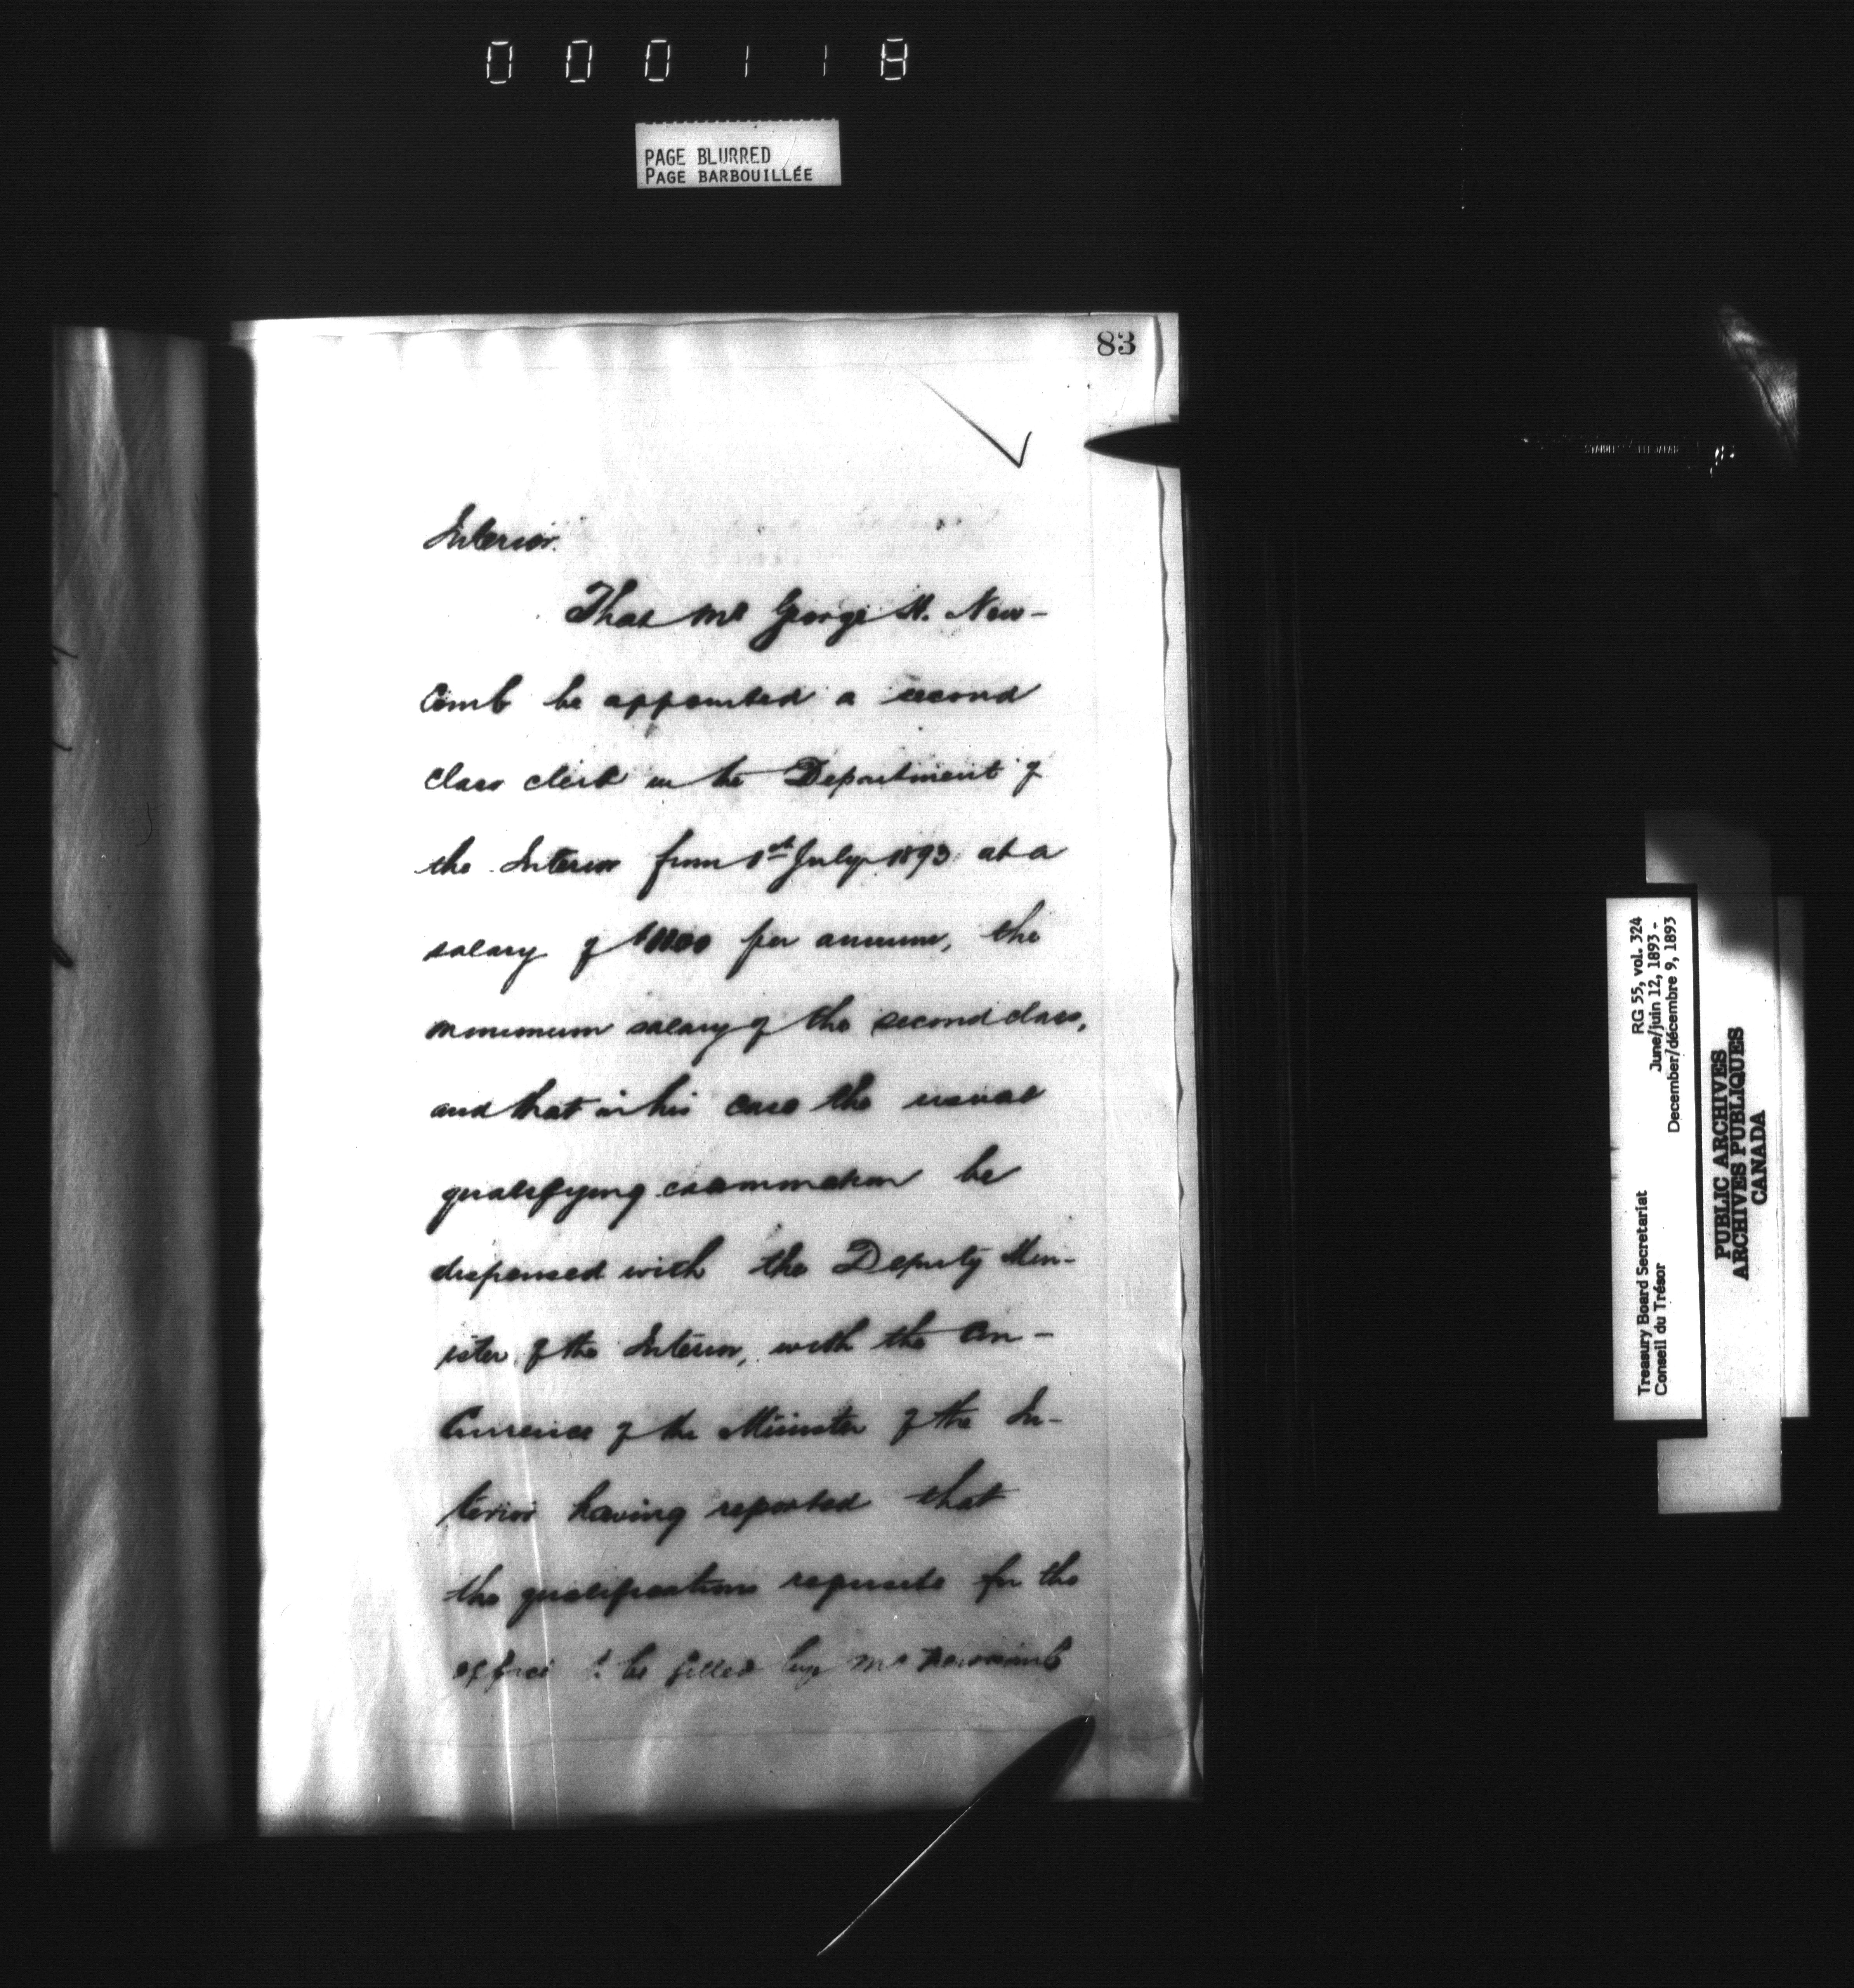 000118
PAGE BLURRED
PAGE BARBOUILLÉE
83
Interior.
That Mr George H. New-
comb be appointed a second
class clerk in the Department of
the Interior from 1st July 1893 at a
salary of $1100 per annum, the
minimum salary of the second class,
and that in his case the usual
qualifying examination be
dispensed with the Deputy Min-
ister of the Interior, with the con-
currence of the Minister of the In-
terior having reported that
the qualifications requisite for the
office to be filled by Mr Newcomb
Treasury Board Secretariat RG 55, vol. 324
Conseil du Trésor June/juin 12, 1893 -
December/décembre 9, 1893
PUBLIC ARCHIVES
ARCHIVES PUBLIQUES
CANADA